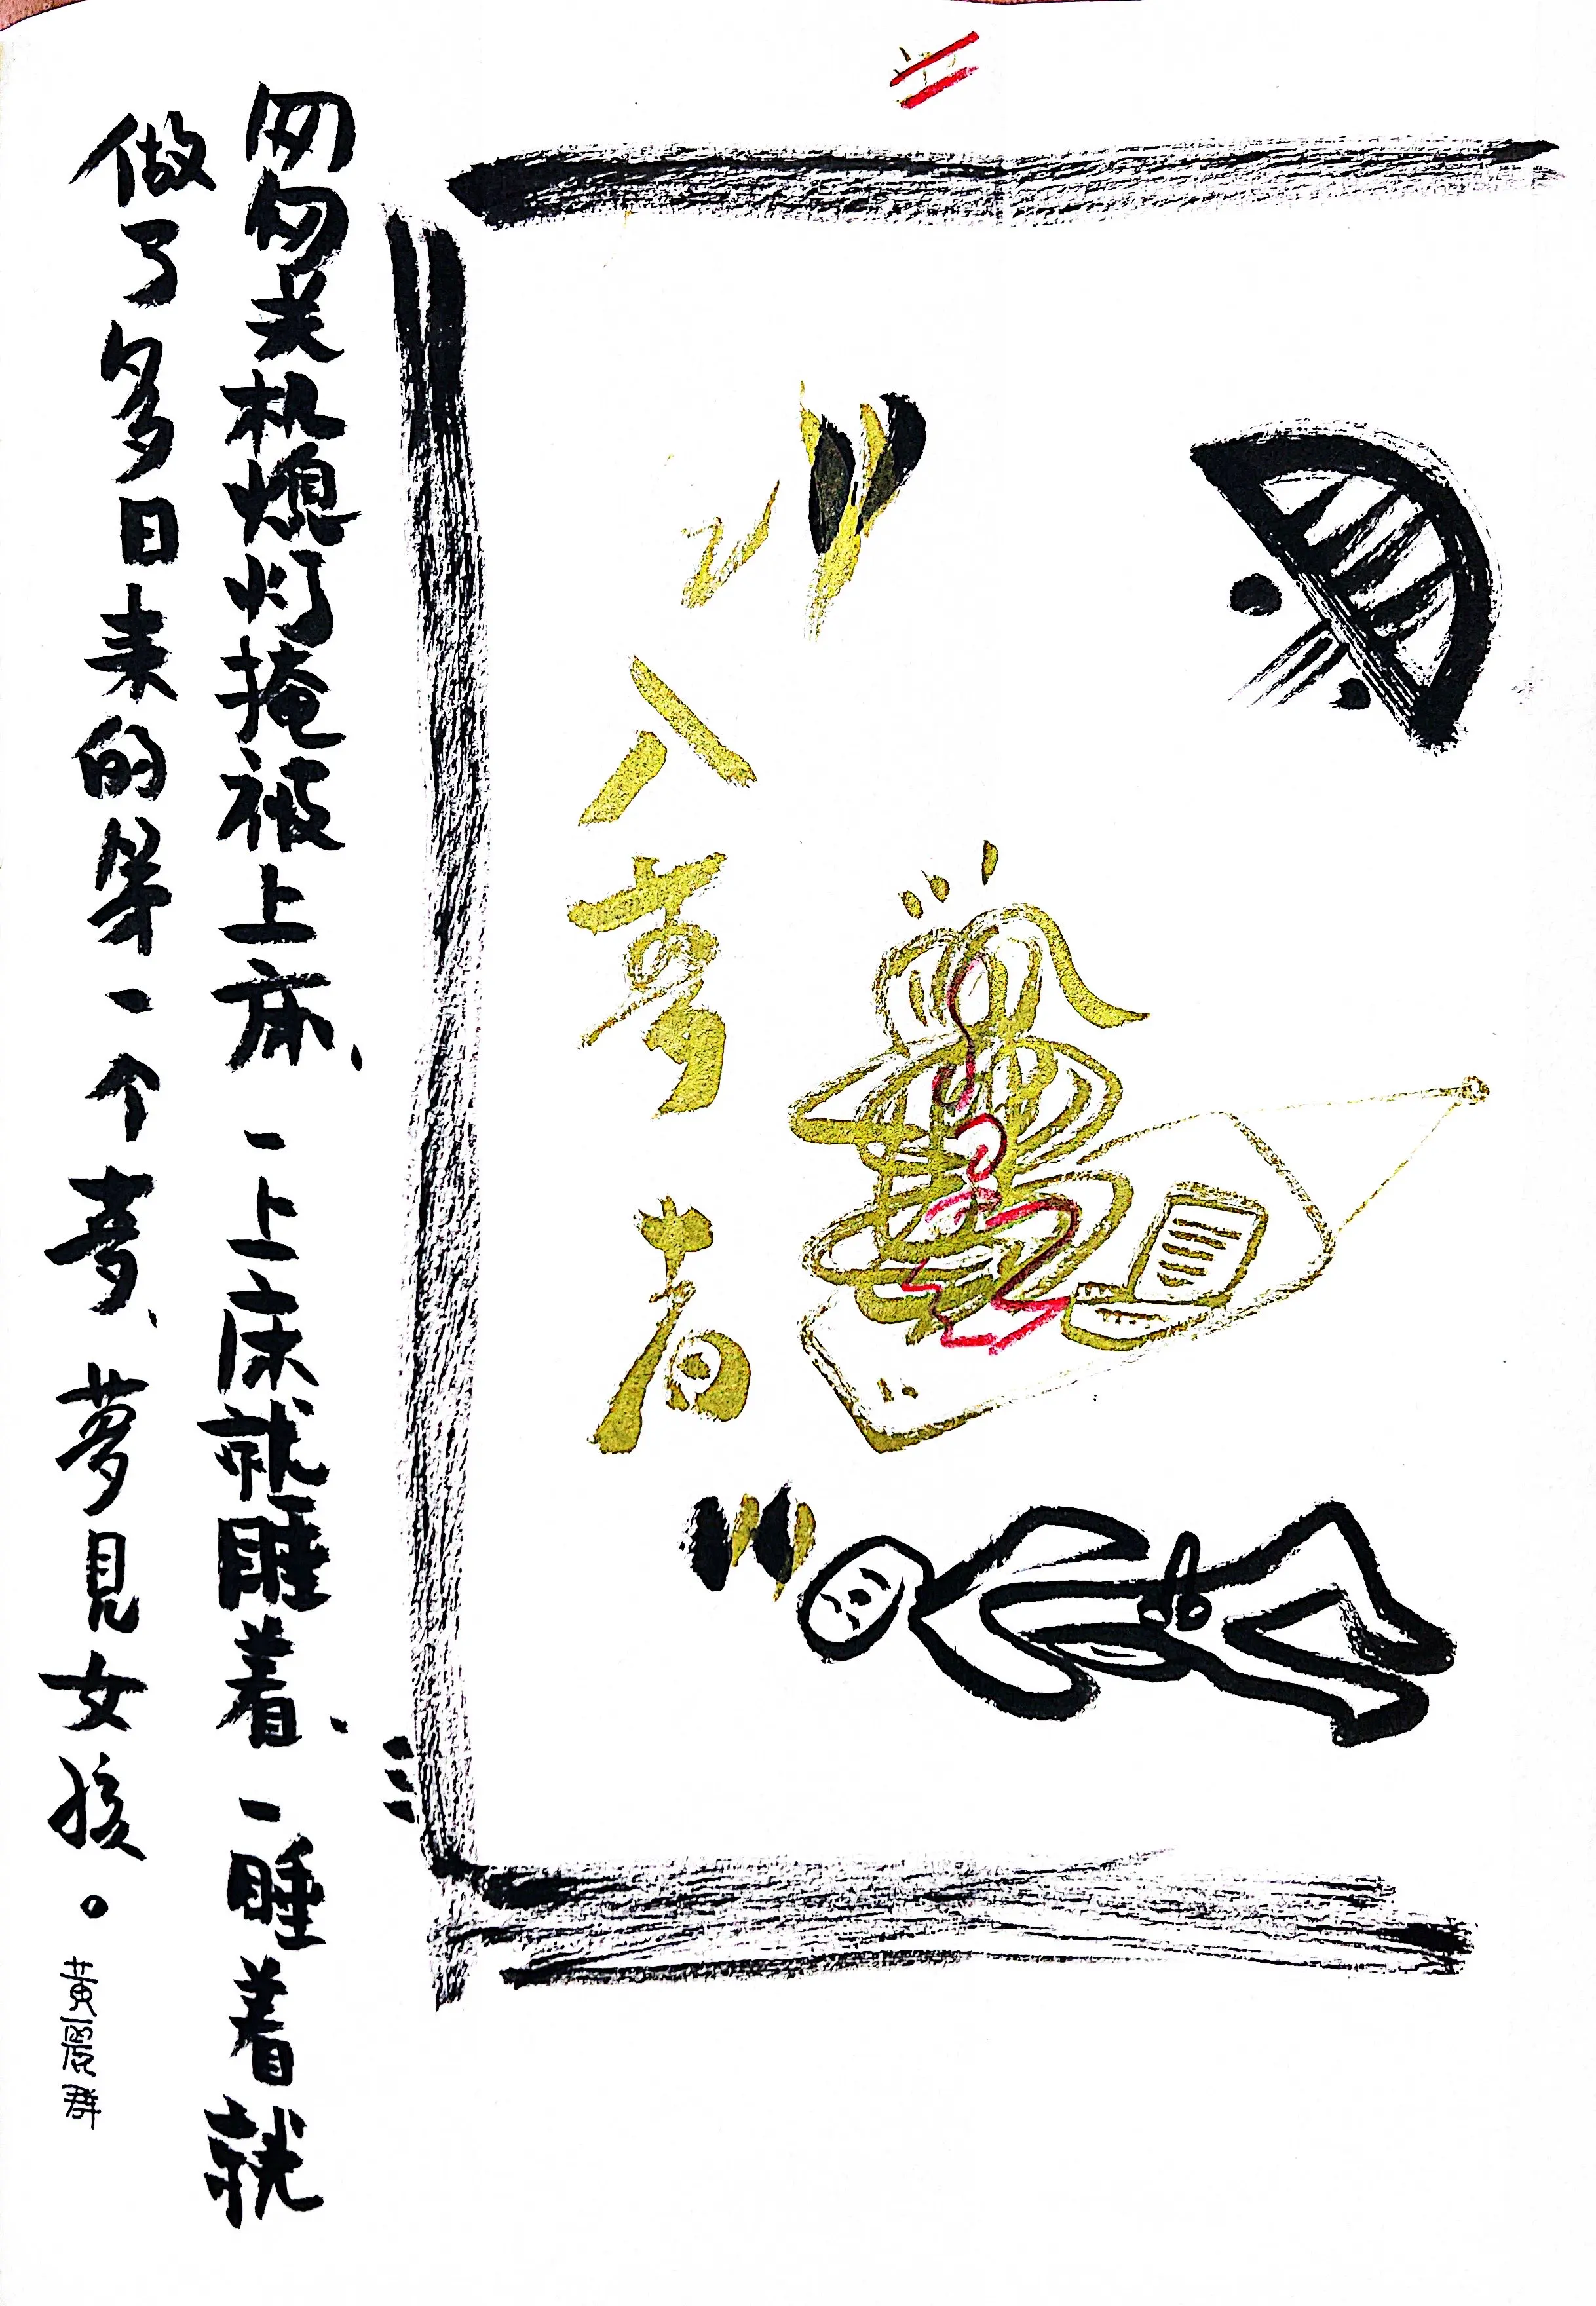 入夢者
匆匆关机熄灯掩被上床、一上床就睡着、一睡着就
做了多日来的第一个夢、夢見女孩。
黃麗群